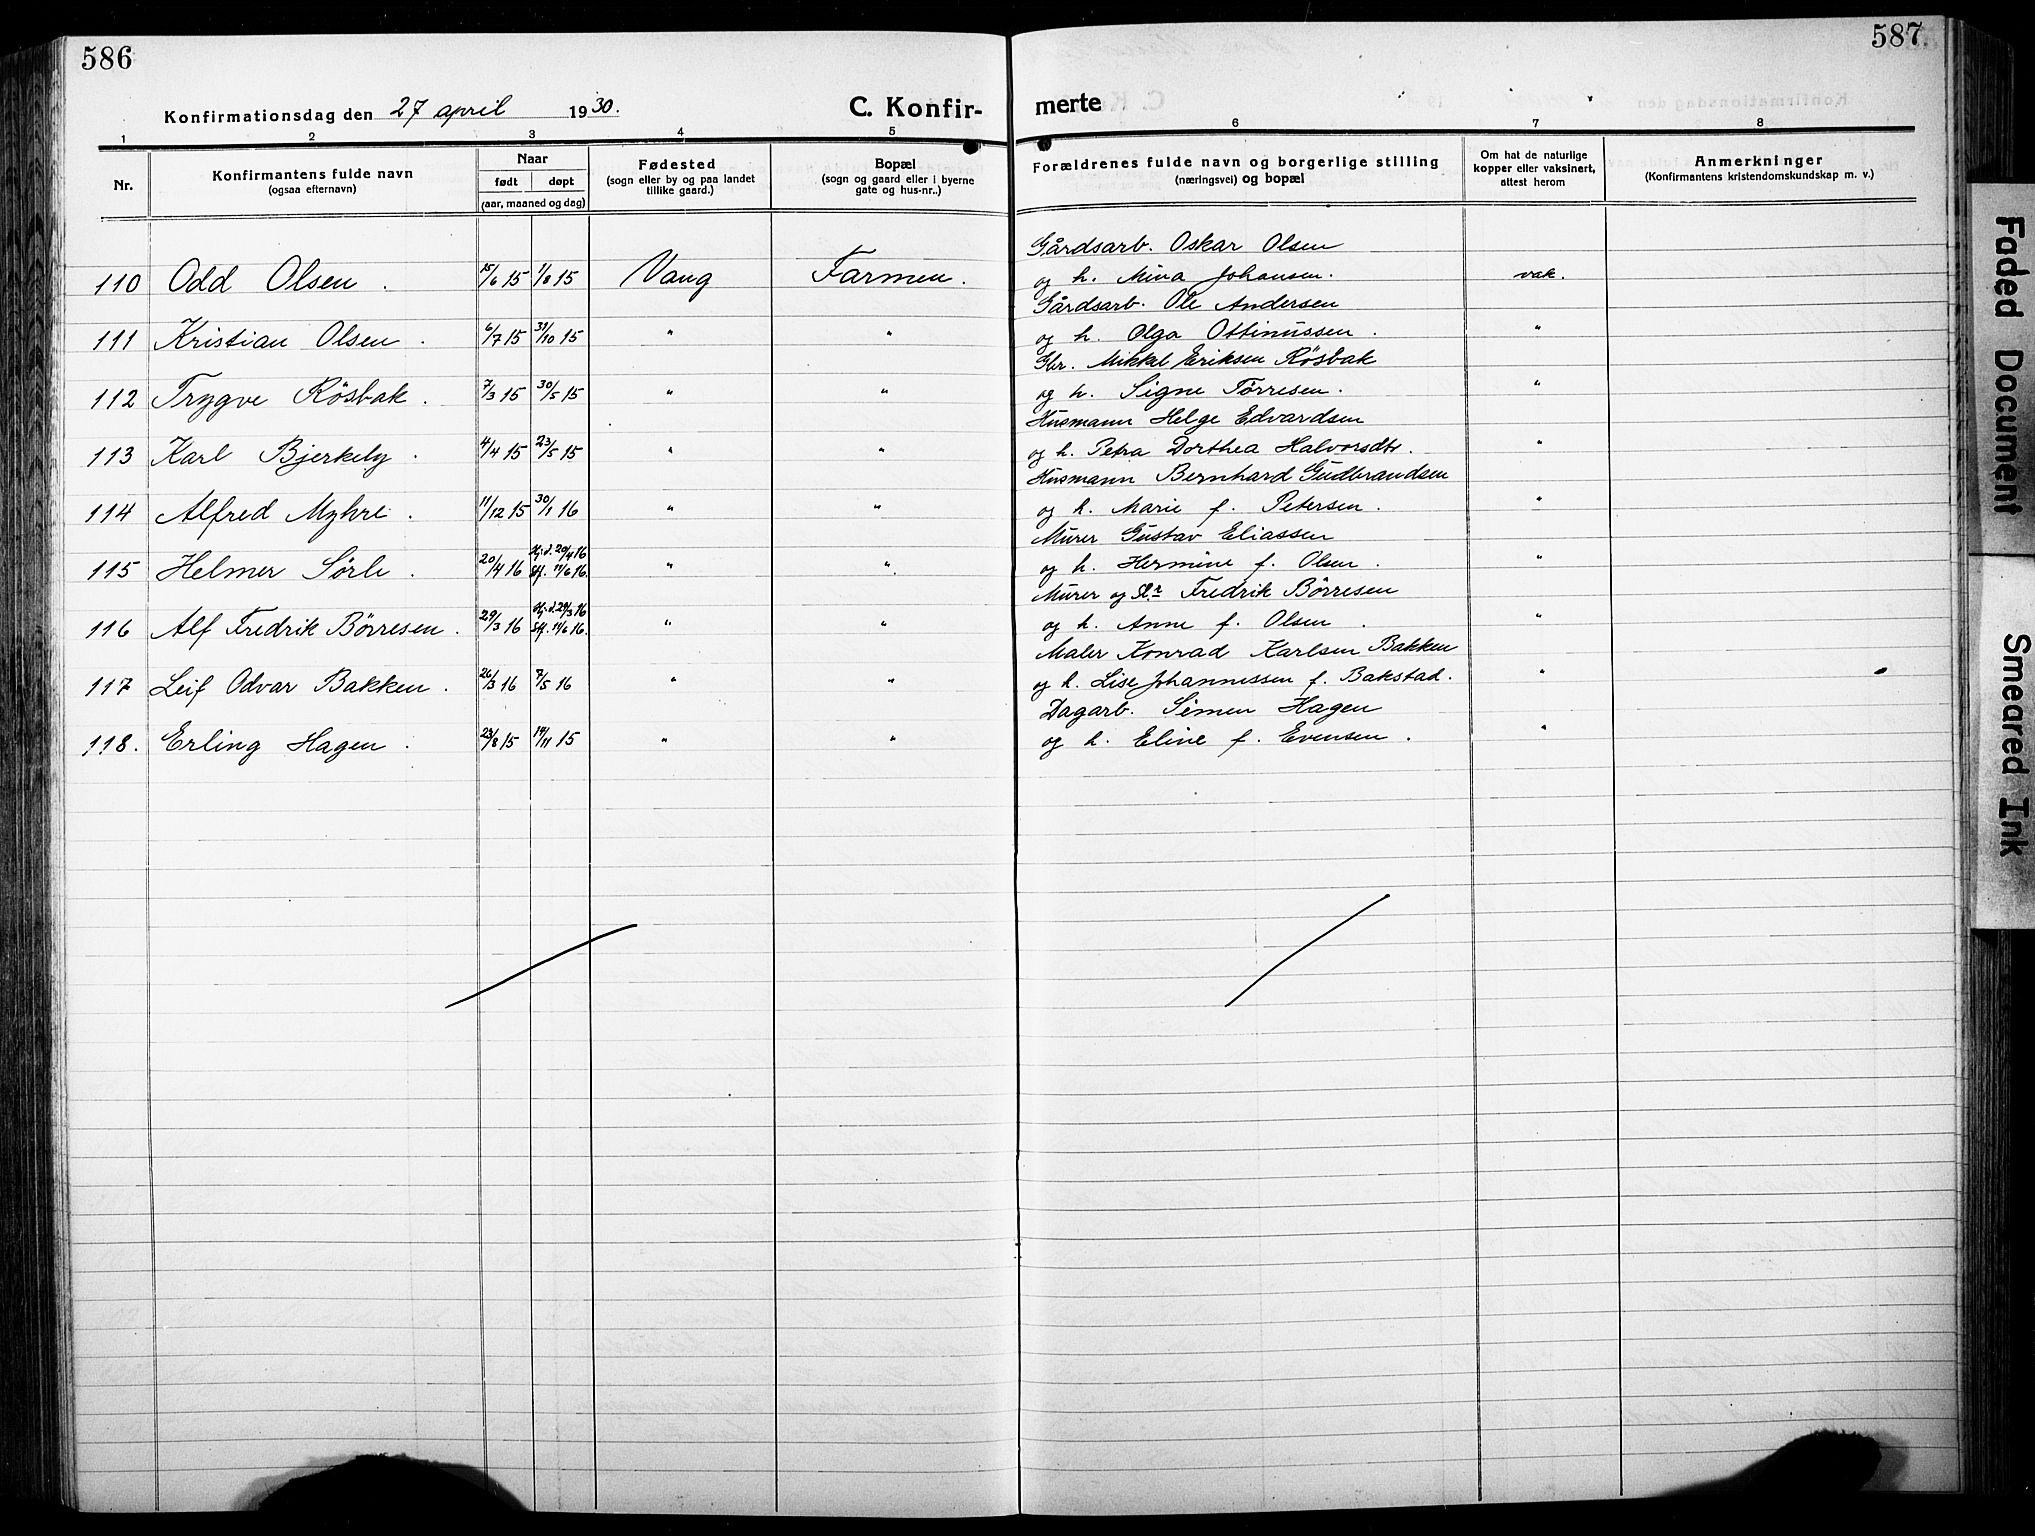 586
587.
Konfirmationsdag den 27 april 1930.
C. Konfir-
merte
1 2 3 4 5 6 7 8
Nr.
Konfirmantens fulde navn
(ogsaa efternavn)
Naar
født døpt
(aar, maaned og dag)
Fødested
(sogn eller by og paa landet
tillike gaard.)
Bopæl
(sogn og gaard eller i byerne
gate og hus-nr..)
Forældrenes fulde navn og borgerlige stilling
(næringsvei) og bopæl
Om hat de naturlige
kopper eller vaksinert,
attest herom
Anmerkninger
(Konfirmantens kristendomskundskap m. v.)
Gårdsarb. Oskar Olsen
110 Odd Olsen . 15/6 15 1/8 15 Vang Farmen. og h. Mina Johansen. vak.
Gårdsarb. Ole Andersen
111 Kristian Olsen . 6/7 15 31/10 15 " " og h. Olga Ottinussen . "
Gbr. Mikkel Eriksen Røsbak
112 Trygve Røsbak . 7/3 15 30/5 15 " " og h. Signe Tørresen. "
Husmann Helge Edvardsen
113 Karl Bjerkely . 4/4 15 23/5 15 " " og h. Petra Dorthea Halvorsdtr. "
Husmann Bernhard Gudbrandsen
114 Alfred Myhre . 11/12 15 30/1 16 " " og h. Marie f. Petersen . "
Murer Gustav Eliassen
Hj.d. 20/4 16
115 Helmer Sørli . 20/4 16 Stf. 11/6 16. " " og h. Hermine f. Olsen . "
Murer og Fredrik Børresen
Hj.d. 29/3 16
116 Alf Fredrik Børresen . 29/3 16 Stf. 11/6 16. " " og h. Anne f. Olsen . "
Maler Konrad Karlsen Bakken
117 Leif Odvar Bakken . 26/3 16 7/5 16 " " og h. Lise Johannessen f. Bakstad. "
Dagarb. Simen Hagen
118. Erling Hagen . 23/8 15 14/11 15 " " og h. Eline f. Evensen . "
Faded Document
Smeared Ink